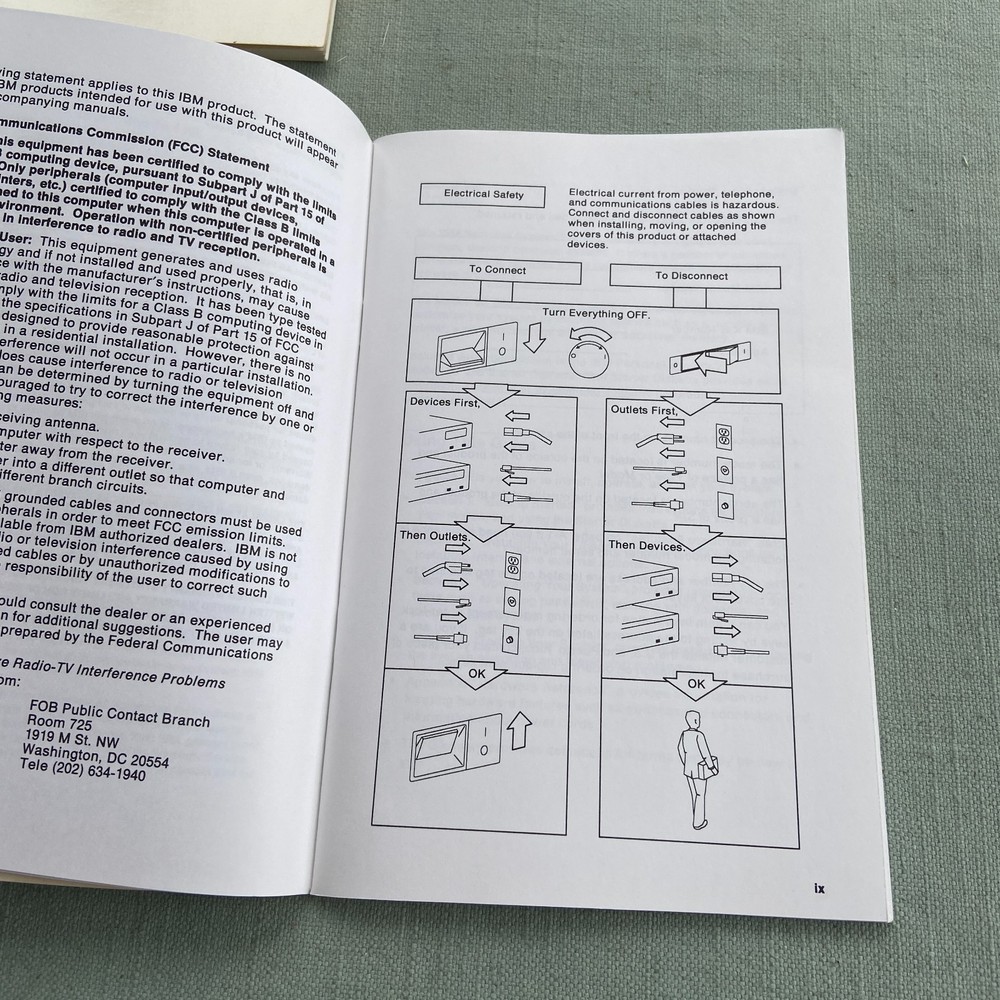 ving statement applies to this IBM product. The statement
BM products intended for use with this product will appear
companying manuals.
mmunications Commission (FCC) Statement
his equipment has been certified to comply with the limits
computing device, pursuant to Subpart J of Part 15 of
Only peripherals (computer input/output devices,
inters, etc.) certified to comply with the Class B limits
ned to this computer when this computer is operated in a
vironment. Operation with non-certified peripherals is
in interference to radio and TV reception.
User: This equipment generates and uses radio
gy and if not installed and used properly, that is, in
ce with the manufacturer's instructions, may cause
radio and television reception. It has been type tested
mply with the limits for a Class B computing device in
the specifications in Subpart J of Part 15 of FCC
designed to provide reasonable protection against
in a residential installation. However, there is no
erference will not occur in a particular installation.
does cause interference to radio or television
an be determined by turning the equipment off and
ouraged to try to correct the interference by one or
ng measures:
ceiving antenna.
mputer with respect to the receiver.
ter away from the receiver.
er into a different outlet so that computer and
ifferent branch circuits.
grounded cables and connectors must be used
pherals in order to meet FCC emission limits.
ilable from IBM authorized dealers. IBM is not
io or television interference caused by using
ed cables or by unauthorized modifications to
responsibility of the user to correct such
ould consult the dealer or an experienced
n for additional suggestions. The user may
prepared by the Federal Communications
ve Radio-TV Interference Problems
om:
FOB Public Contact Branch
Room 725
1919 M St. NW
Washington, DC 20554
Tele (202) 634-1940
Electrical Safety
Electrical current from power, telephone,
and communications cables is hazardous.
Connect and disconnect cables as shown
when installing, moving, or opening the
covers of this product or attached
devices.
To Connect
To Disconnect
Turn Everything OFF.
Devices First,
Outlets First,
Then Outlets.
Then Devices.
OK
OK
ix